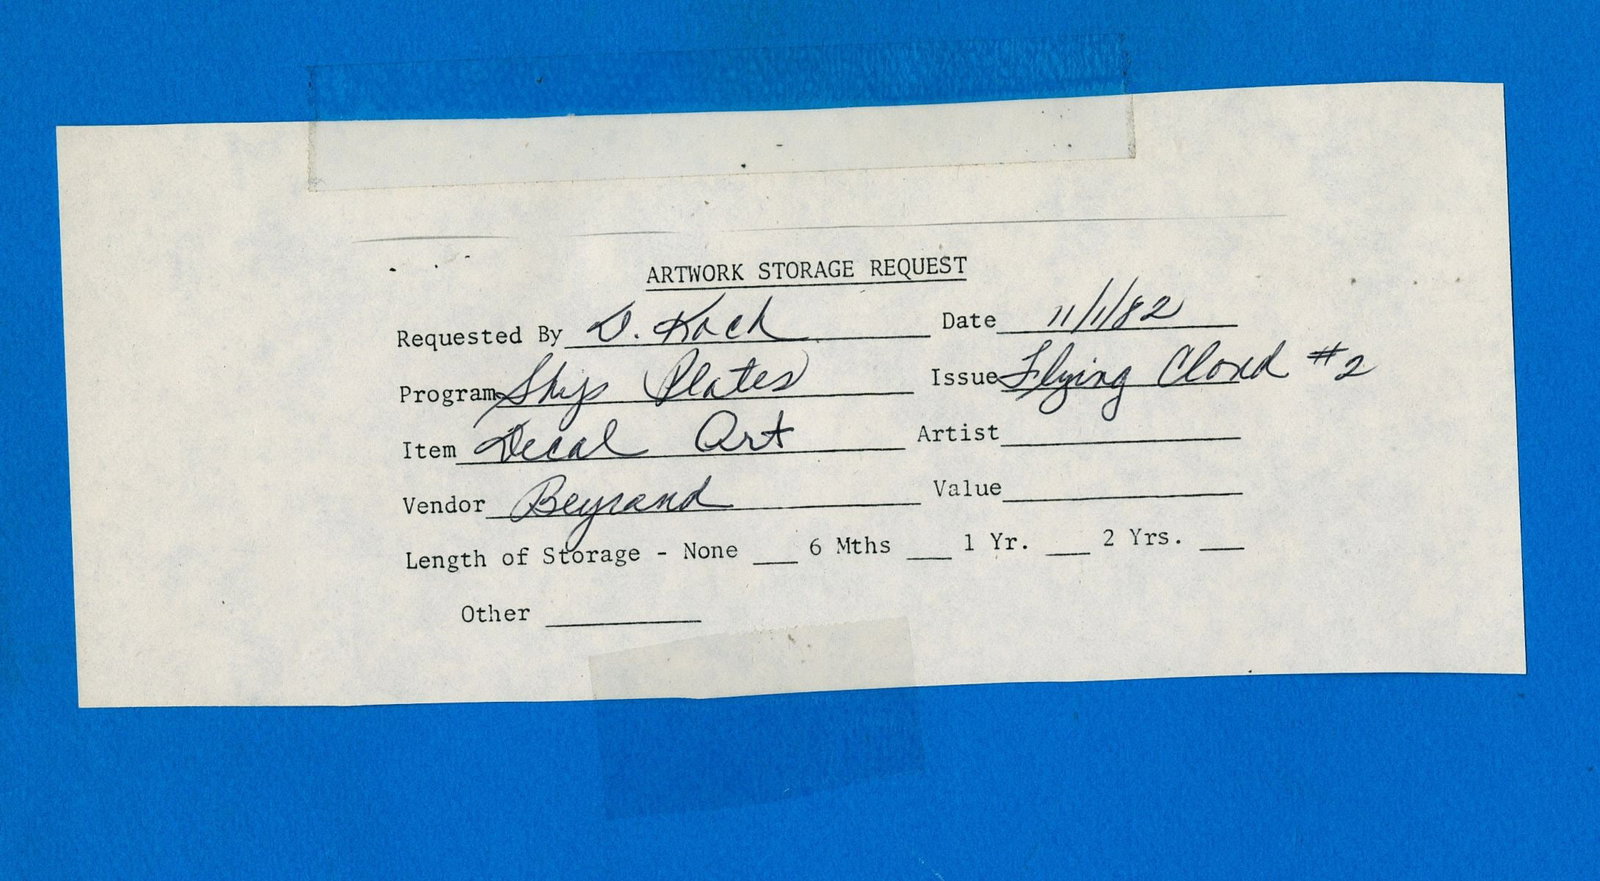 ARTWORK STORAGE REQUEST
Requested By D. Koch Date 11/1/82
Program Ships Plates Issue Flying Cloud #2
Item Decal Art Artist
Vendor Beyrand Value
Length of Storage - None ___ 6 Mths ___ 1 Yr. ___ 2 Yrs. ___
Other